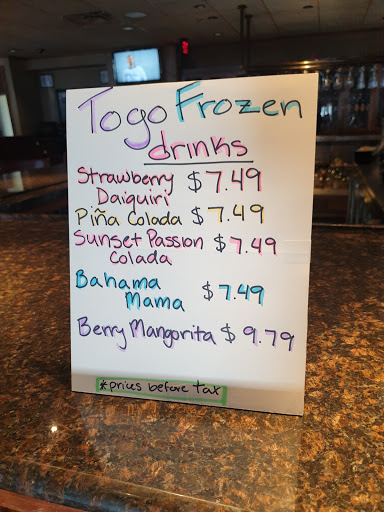 Togo Frozen
drinks
Strawberry $7.49
Daiquiri
Piña Colada $7.49
Sunset Passion $7.49
Colada
Bahama
Mama $7.49
Berry Mangorita $9.79
*prices before tax